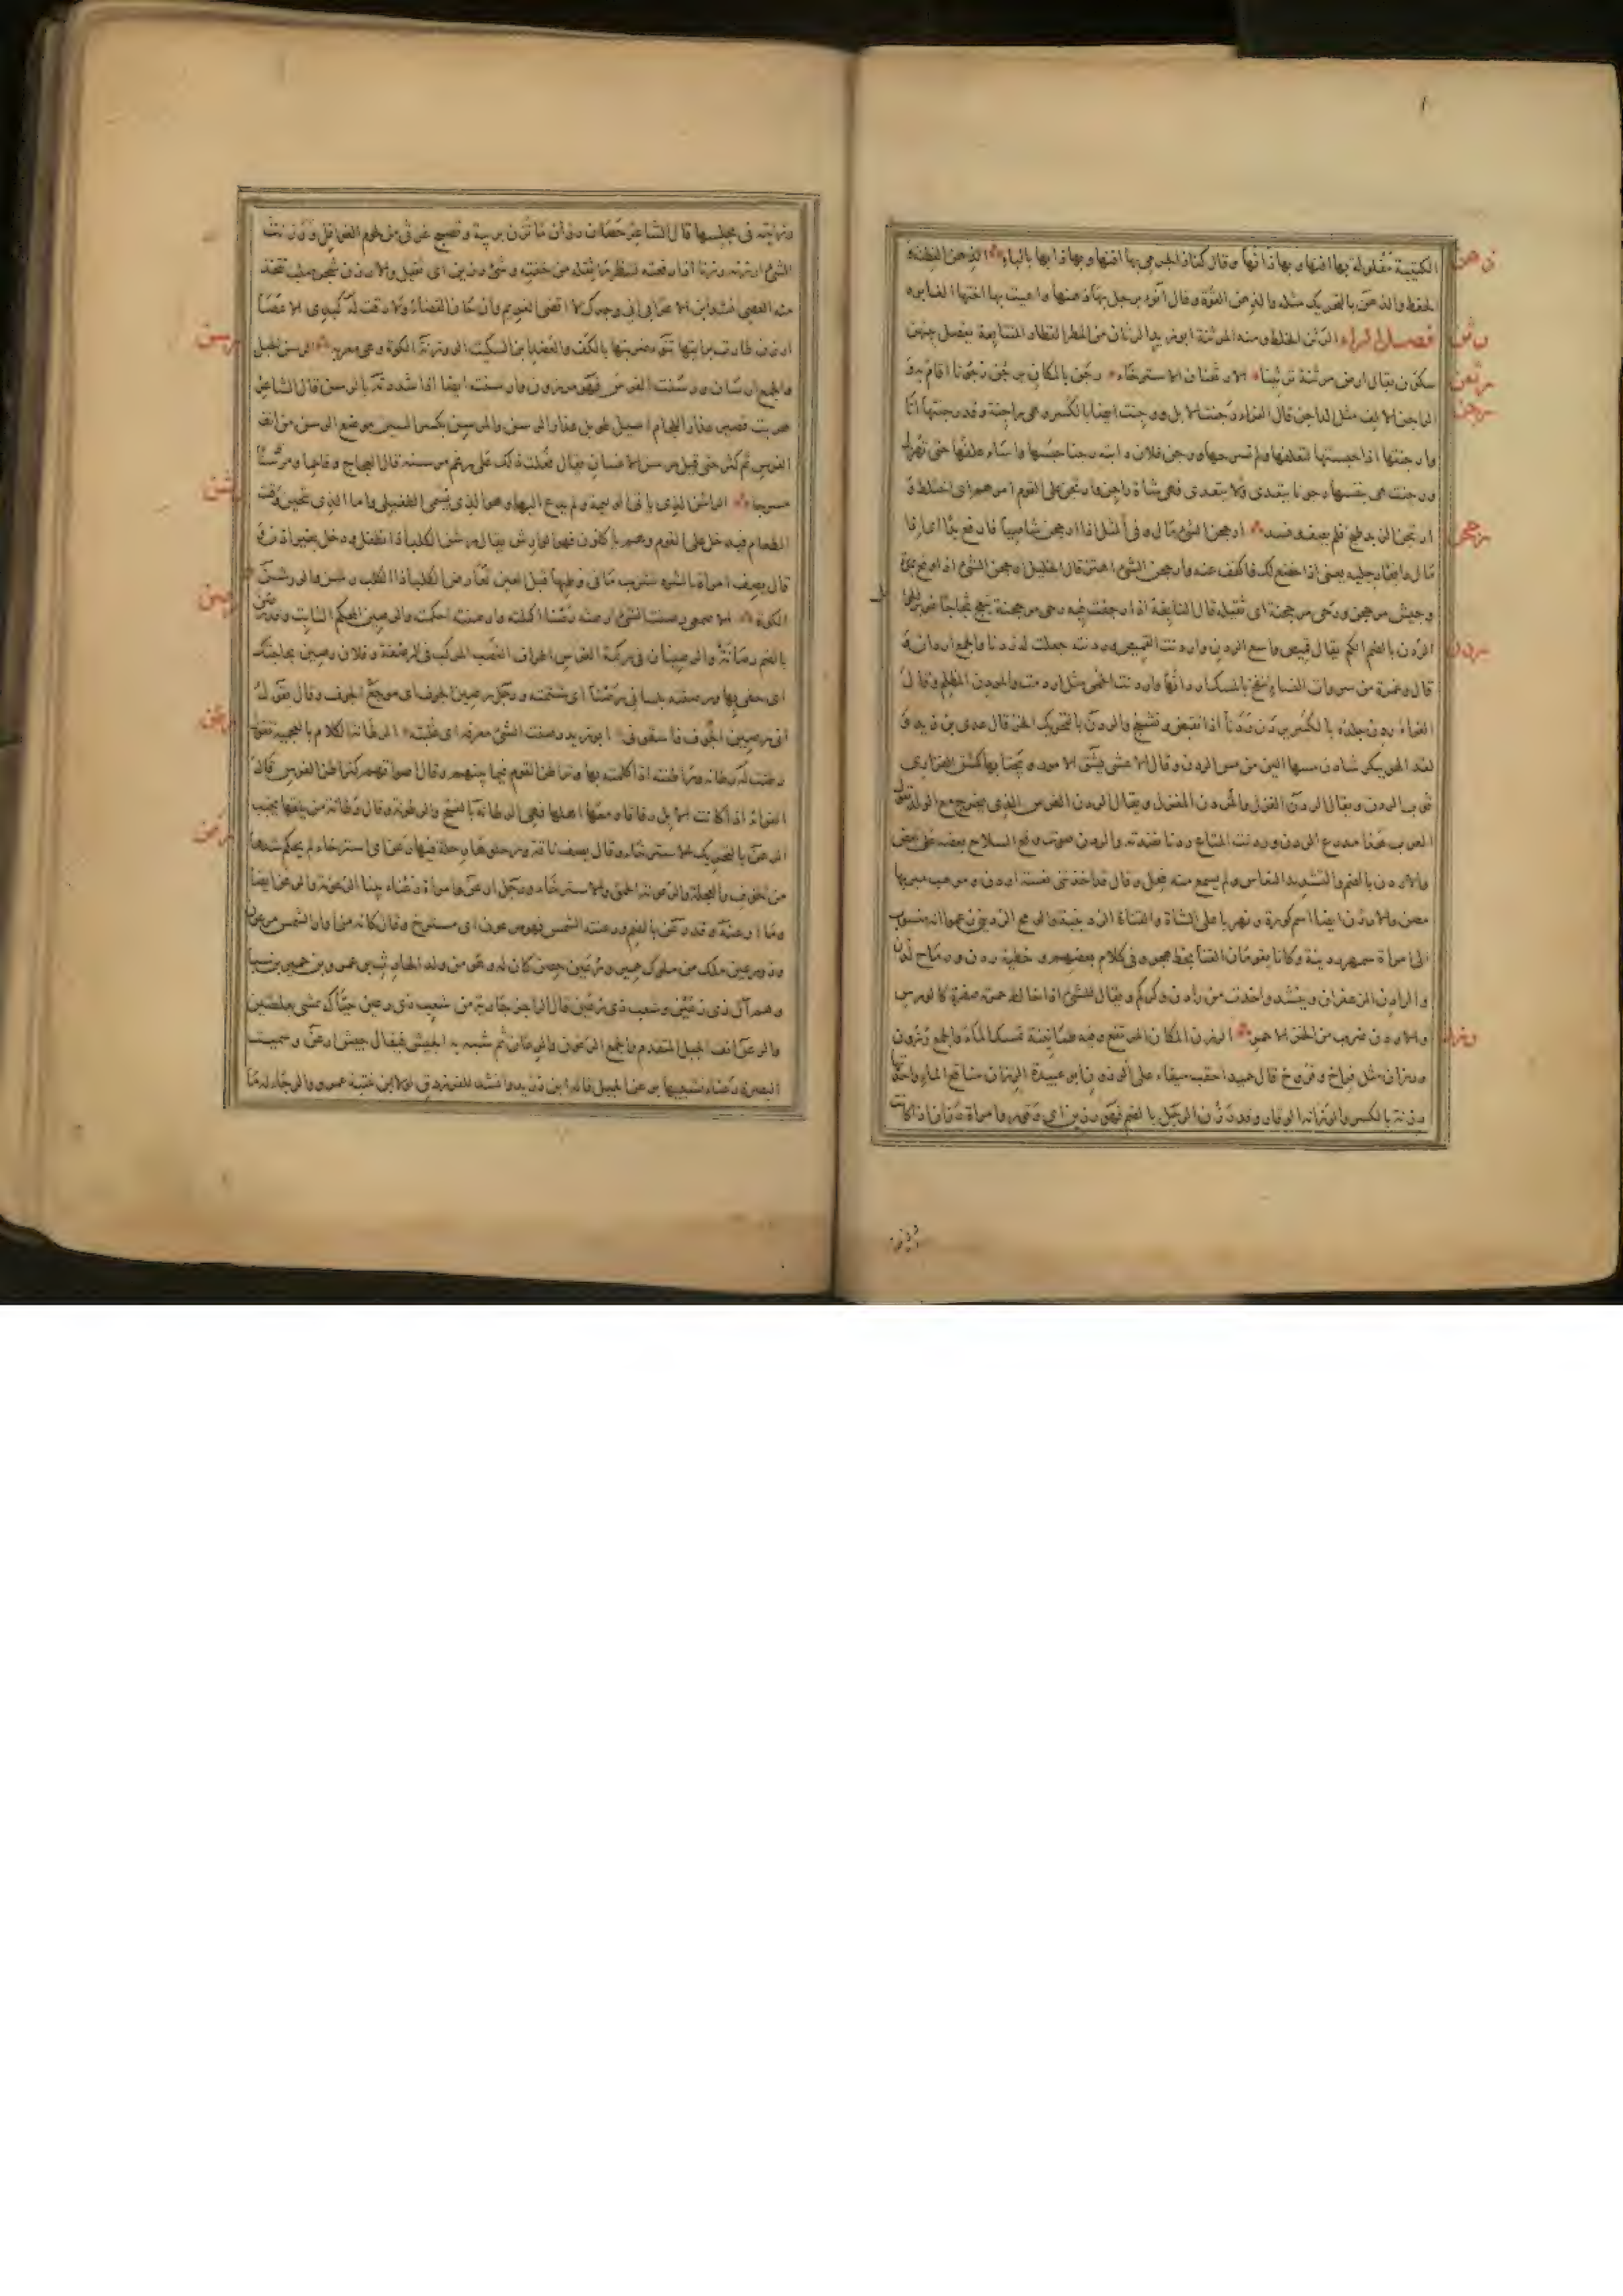 ذهن
الكتيبة مفلولة بها افنها وبها ذانها وقال كناز الجرمي بها افنها وبها ذابها بالباء الذهن الفطنة
والحفظ والذهن بالتحريك مثله والذهن القوة وقال انوء برجل بها ذهنها واعيت بها اختها الغابره
رثن
فصل الراء الرثن الخلط ومنه المرثنة ابو زيد الرثان من المطر القطار المتتابعة يفصل بينهن
رثعن
سكون يقال ارض مرثنة ترثينا الارثعنان الاسترخاء رجن بالمكان يرجن رجونا اقام به و
رجن
الراجن الالف مثل الداجن قال الفراء رجنت الابل ورجنت ايضا بالكسر وهي راجنة وقد رجنتها انا
وارجنتها اذا حبستها لتعلفها ولم تسرحها ورجن فلان دابته رجنا حبسها واساء علفها حتى تهزل
ورجنت هي بنفسها رجونا يتعدى ولا يتعدى فهي شاة راجن وارتجن على القوم امرهم اي اختلط و
رجحن
ارتجن الزبد طبخ فلم يصف وفسد ارجحن الشيء مال وفي المثل اذا ارجحن شاصيا فارفع يدا اي اذا
مال رافعا رجليه يعني اذا خضع لك فاكفف عنه وارجحن الشيء اهتز قال الخليل ارجحن الشيء اذا وقع بمرة
وجيش مرجحن ورحى مرجحنة اي ثقيلة قال النابغة اذا رجفت فيه رحى مرجحنة تبعج ثجاجا غزير
ردن
الردن بالضم الكم يقال قميص واسع الردن واردنت القميص وردنته جعلت له ردنا والجمع اردان
قال وعمرة من سروات النساء تنفخ بالمسك اردانها واردنت الحمى مثل اردمت والمردن المظلم وقال
الفراء ردن جلده بالكسر يردن ردنا اذا تقبض وتشنج والردن بالتحريك الخز قال عدي بن زيد و
لقد الهو ببكر شادن مسها الين من مس الردن وقال الاعشى يشق الامور ويجتابها كشق القراري
ثوب الردن ويقال الردن الغزل والمردن المغزل ويقال الردن الغرس الذي يخرج مع الولد تقول
العرب هذا مدرع الردن وردنت المتاع ردنا نضدته والردن صوت وقع السلاح بعضه على بعض
والاردن بالضم والتشديد النعاس ولم يسمع منه فعل وقال قد اخذتني نعسة اردن وموهب مبز بها
مصن والاردن ايضا اسم كورة ونهر باعلى الشام والقناة الردينية والرمح الرديني زعموا انه منسوب
الى امراة سمهر ردينة وكانا يقومان القنا بخط هجر وفي كلام بعضهم خطية ردن ورماح لدن
والرادن الزعفران وينشد واخذت من رادن وكركم ويقال للشيء اذا خالط حمرته صفرة كالورس
رزن
والاردن ضرب من الخز الاحمر الرزن المكان المرتفع وفيه طمانينة تمسك الماء والجمع رزون
ورزان مثل فراخ وفروخ قال حميد احقب ميفاء على الرزون ابو عبيدة الرزان مناقع الماء واحدتها
رزنة بالكسر والرزانة الوقار وقد رزن الرجل بالضم فهو رزين اي وقور وامراة رزان اذا كانت
رزينة
رزينة في مجلسها قال الشاعر حصان رزان ما تزن بريبة وتصبح غرثى من لحوم الغوافل ورزنت
الشيء ارزنه رزنا اذا رفعته لتنظر ما ثقله من خفته وشيء رزين اي ثقيل والارزن شجر صلب تتخذ
منه العصي انشد ابن الاعرابي اني وجدك لا اقضي الغريم وان حان القضاء ولا رقت له كبدي الا عصا
رسن
ارزن طارت برايتها تنوء ضربتها بالكف والعضد ابن السكيت الروزنة الكوة وهي معربة الرسن الحبل
والجمع ارسان ورسنت الفرس فهو مرسون وارسنته ايضا اذا شددته بالرسن قال الشاعر
هريت قصير عذار اللجام اسيل طويل عذار الرسن والمرسن بكسر السين موضع الرسن من انف
الفرس ثم كثر حتى قيل مرسن الانسان يقال فعلت ذلك على رغم مرسنه قال العجاج وفاحما ومرسنا
رشن
مسرجا الراشن الذي ياتي الوليمة ولم يدع اليها وهو الذي يسمى الطفيلي واما الذي يتحين وقت
الطعام فيدخل على القوم وهم ياكلون فهو الوارش يقال رشن الكلب اذا تطفل ودخل بغير اذن
رصن
الكوة الاصمعي رصنت الشيء ارصنه رصنا اكملته وارصنته احكمته والرصين المحكم الثابت وقد رصن
بالضم رصانة والرصينان في ركبة الفرس اطراف القصب المركب في الرضفة وفلان رصين بحاجتك
اي حفي بها ورصنته بلساني رصنا اي شتمته ورجل رصين الجوف اي موجع الجوف وقال يقول
رطن
اني رصين الجوف فاسقوني ابو زيد رصنت الشيء معرفة اي علمته الرطانة الكلام بالعجمية تقول
رطنت له رطانة وراطنته اذا كلمته بها وتراطن القوم فيما بينهم وقال اصواتهم كتراطن الفرس قال
الفراء اذا كانت الابل رفاقا ومعها اهلها فهي الرطانة بالفتح والرطون وقال رطانة من يلقها يخيب
رعن
الرعن بالتحريك الاسترخاء وقال يصف ناقة ورحلوها رحلة فيها رعن اي استرخاء لم يحكم شدها
من الخوف والعجلة والرعونة الحمق والاسترخاء ورجل ارعن وامراة رعناء بينا الرعونة والرعن ايضا
وما ارعنه وقد رعن بالضم ورعنته الشمس فهو مرعون اي مسترخ وقال كانه من اوار الشمس مرعون
وذو رعين ملك من ملوك حمير ورعين حصن كان له وهو من ولد الحارث بن عمرو بن حمير بن سبا
وهم آل ذي رعين وشعب ذي رعين قال الراجز جارية من شعب ذي رعين حياكة تمشي بعلطتين
والرعن انف الجبل المتقدم والجمع الرعون والرعان ثم شبه به الجيش فيقال جيش ارعن وسميت
البصرة رعناء تشبيها برعن الجبل قاله ابن دريد وانشد للفرزدق لولا ابن عتبة عمرو والرجاء له ما